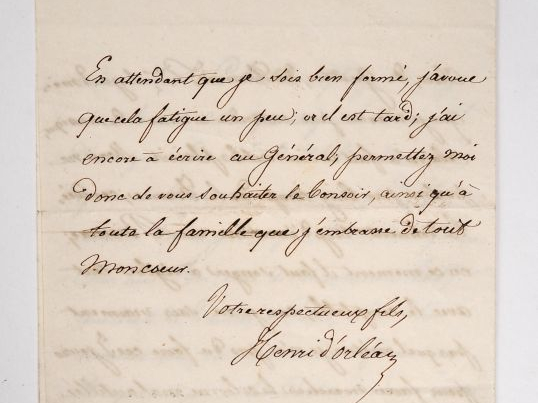 En attendant que je sois bien formé, j'avoue
que cela fatigue un peu; or il est tard; j'ai
encore à écrire au Général; permettez moi
donc de vous souhaiter le bonsoir, ainsi qu'à
toute la famille que j'embrasse de tout
mon cœur.
Votre respectueux fils,
Henri d'Orléans